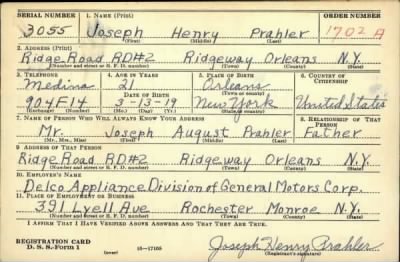 SERIAL NUMBER 1. NAME (Print) ORDER NUMBER
3055 Joseph Henry Prahler 1702 A
(First) (Middle) (Last)
2. ADDRESS (Print)
Ridge Road RD#2 Ridgeway Orleans N.Y.
(Number and street or R. F. D. number) (Town) (County) (State)
3. TELEPHONE 4. AGE IN YEARS 5. PLACE OF BIRTH 6. COUNTRY OF CITIZENSHIP
Medina 21 Orleans
DATE OF BIRTH (Town or county)
904F14 3-13-19 New York United States
(Exchange) (Number) (Mo.) (Day) (Yr.) (State or country)
7. NAME OF PERSON WHO WILL ALWAYS KNOW YOUR ADDRESS 8. RELATIONSHIP OF THAT PERSON
Mr. Joseph August Prahler Father
(Mr., Mrs., Miss) (First) (Middle) (Last)
9. ADDRESS OF THAT PERSON
Ridge Road RD#2 Ridgeway Orleans N.Y.
(Number and street or R. F. D. number) (Town) (County) (State)
10. EMPLOYER'S NAME
Delco Appliance Division of General Motors Corp.
11. PLACE OF EMPLOYMENT OR BUSINESS
391 Lyell Ave Rochester Monroe N.Y.
(Number and street or R. F. D. number) (Town) (County) (State)
I AFFIRM THAT I HAVE VERIFIED ABOVE ANSWERS AND THAT THEY ARE TRUE.
REGISTRATION CARD
D. S. S. Form 1 (over) 16—17105 Joseph Henry Prahler
(Registrant's signature)